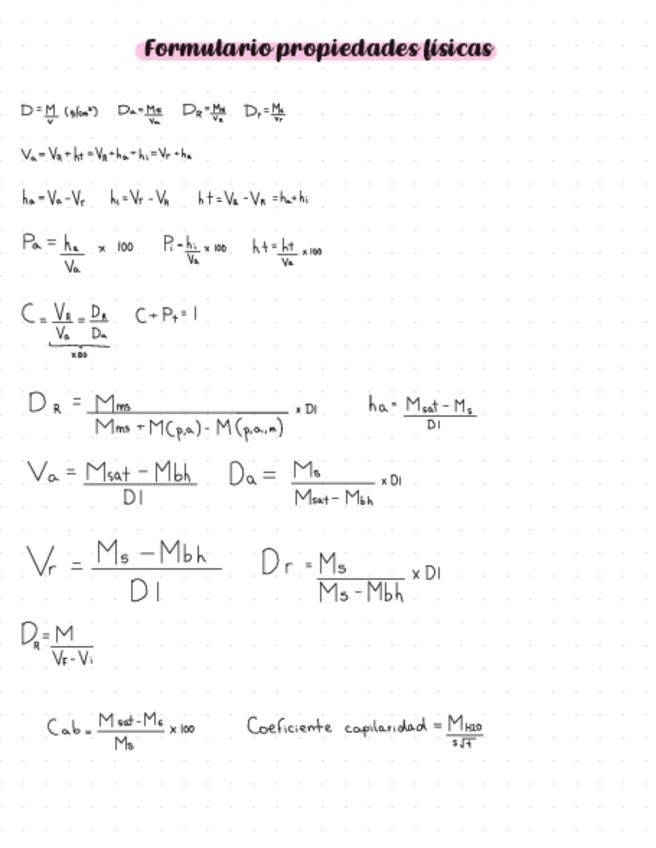 Formulario propiedades físicas
D = M/V (g/cm³) Da = Ms/Va DR = Ms/VR Dr = Ms/Vr
Va = VR + ht = VR + ha + hi = Vr + ha
ha = Va - Vr hi = Vr - VR ht = Va - VR = ha + hi
Pa = ha/Va x 100 Pi = hi/Va x 100 ht = ht/Va x 100
C = VR/Va = DR/Da C + Pt = 1
x100
DR = Mms/(Mms + M(p,a) - M(p,a,m)) x Dl ha = (Msat - Ms)/Dl
Va = (Msat - Mbh)/Dl Da = Ms/(Msat - Mbh) x Dl
Vr = (Ms - Mbh)/Dl Dr = Ms/(Ms - Mbh) x Dl
DR = M/(VF - Vi)
Cab = (Msat - Ms)/Ms x 100 Coeficiente capilaridad = MH2O/(s√t)